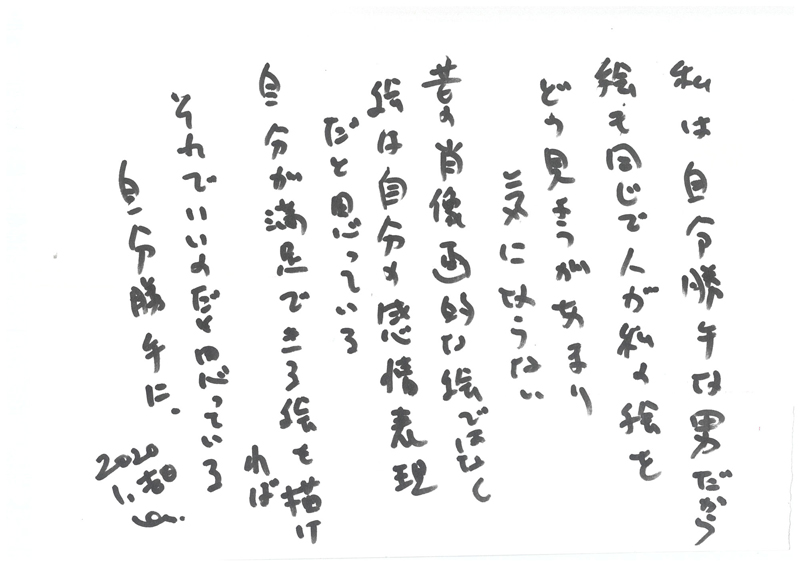 私は自分勝手な男だから
絵も同じで人が私の絵を
どう見ようがあまり
気にならない
昔の肖像画的な絵ではなく
絵は自分の感情表現
だと思っている
自分が満足できる絵を描け
れば
それでいいのだと思っている
自分勝手に、
2020
1.